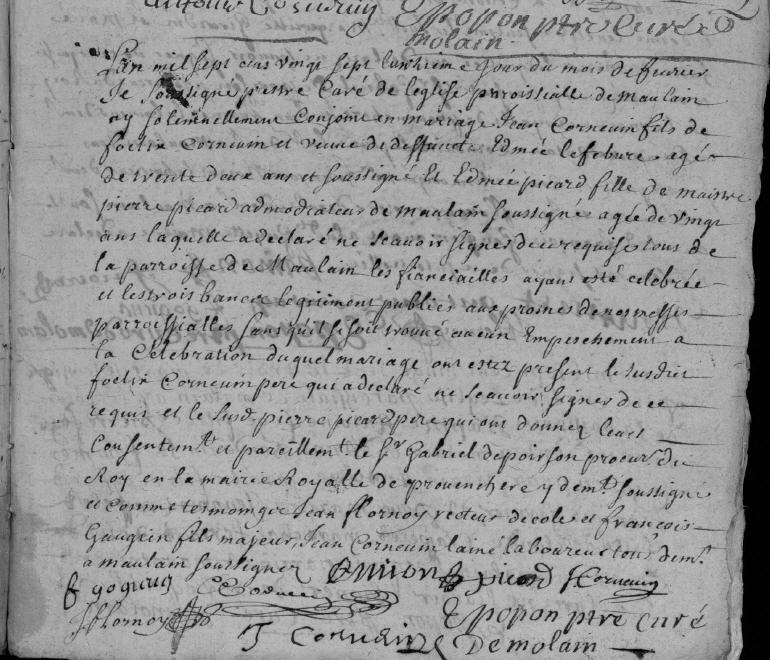 Antoine Cornevin
E popon ptre Curé
molain
L'an mil sept cens vingt sept le unzieme Jour du mois de fevrier
Je soussigné prestre Curé de leglise paroissialle de Maulain
ay solemnellement Conjoint en mariage Jean Cornevin fils de
foelix Cornevin et veuve de deffuncte Edmée lefebure agé
de trente deux ans et soussigné Et Edmée picard fille de maistre
pierre picard admodiateur de Maulain soussigné agée de vingt
ans laquelle a declaré ne scavoir signer de ce requise tous de
la parroisse de Maulain les fiancailles ayant esté celebrée
et les trois bancs legitiment publiés aux prosnes de nos messes
parroissialles sans qu'il se soit trouvé aucun Empeschement a
la Celebration duquel mariage ont estez present le susdict
foelix Cornevin pere qui a declaré ne scavoir signer de ce
requis et le susd pierre picard pere qui ont donnez leurs
Consentemt et pareillemt le sr Gabriel depoirson procur du
Roy en la mairie Royalle de provenchere y demt soussigné
et comme tesmoings Jean flornoy recteur decole et francois
fils majeur, Jean Cornevin lainé laboureur tous demt
a maulain soussignez
picard J Cornevin
J flornoy
E popon ptre curé
J Cornevin Demolain